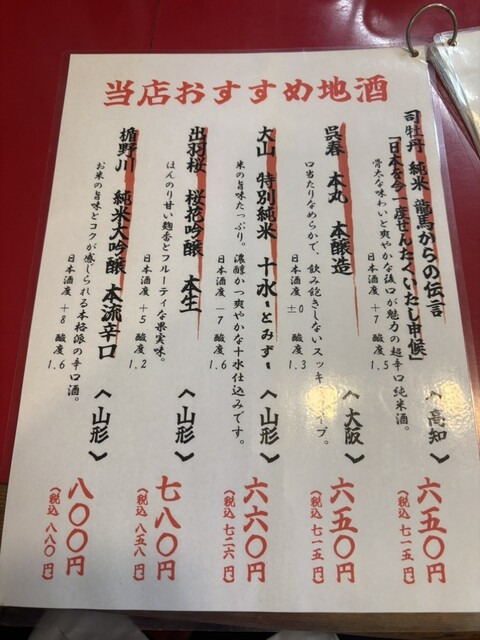 当店おすすめ地酒
司牡丹 純米 龍馬からの伝言
「日本を今一度せんたくいたし申候」
〈高知〉
骨太な味わいと爽やかな後口が魅力の超辛口純米酒。
日本酒度 +7 酸度 1.5
六五〇円
(税込 七一五円)
呉春 本丸 本醸造
〈大阪〉
口当たりなめらかで、飲み飽きしないスッキ イプ。
日本酒度 ±0 酸度 1.3
六五〇円
(税込 七一五円)
大山 特別純米 十水"とみず"
〈山形〉
米の旨味たっぷり。濃醇かつ爽やかな十水仕込みです。
日本酒度 -7 酸度 1.6
六六〇円
(税込 七二六円)
出羽桜 桜花吟醸 本生
〈山形〉
ほんのり甘い麹香とフルーティな果実味。
日本酒度 +5 酸度 1.2
七八〇円
(税込 八五八円)
楯野川 純米大吟醸 本流辛口
〈山形〉
お米の旨味とコクが感じられる本格派の辛口酒。
日本酒度 +8 酸度 1.6
八〇〇円
(税込 八八〇円)